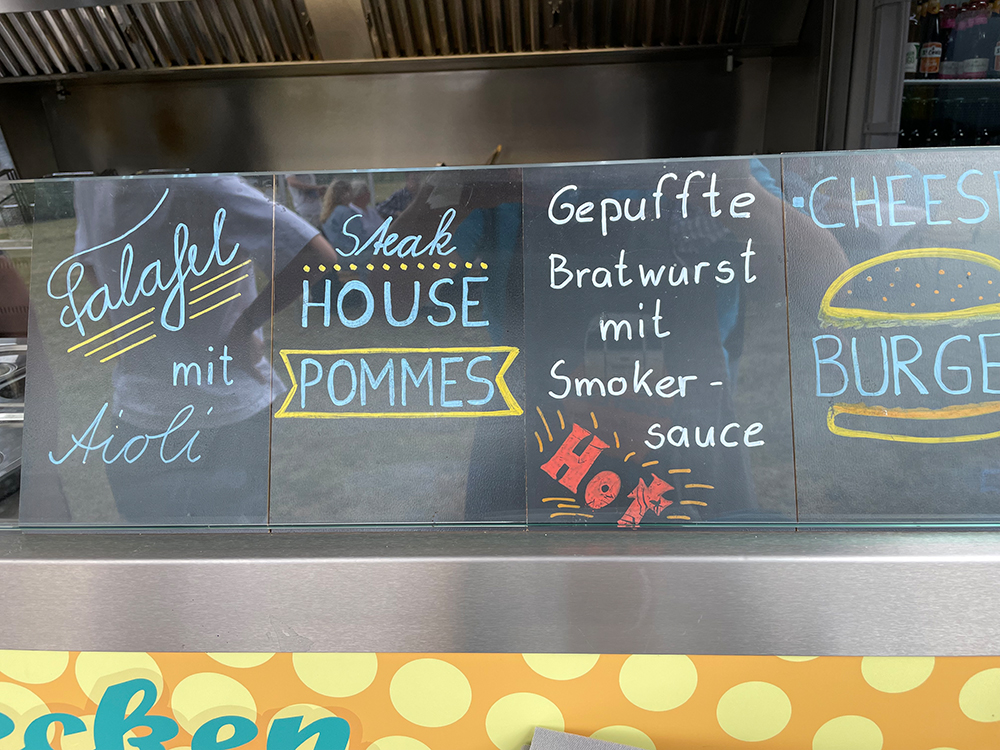 Falafel
mit
Aioli
Steak
HOUSE
POMMES
Gepuffte
Bratwurst
mit
Smoker-
sauce
HOT
CHEES
BURGE